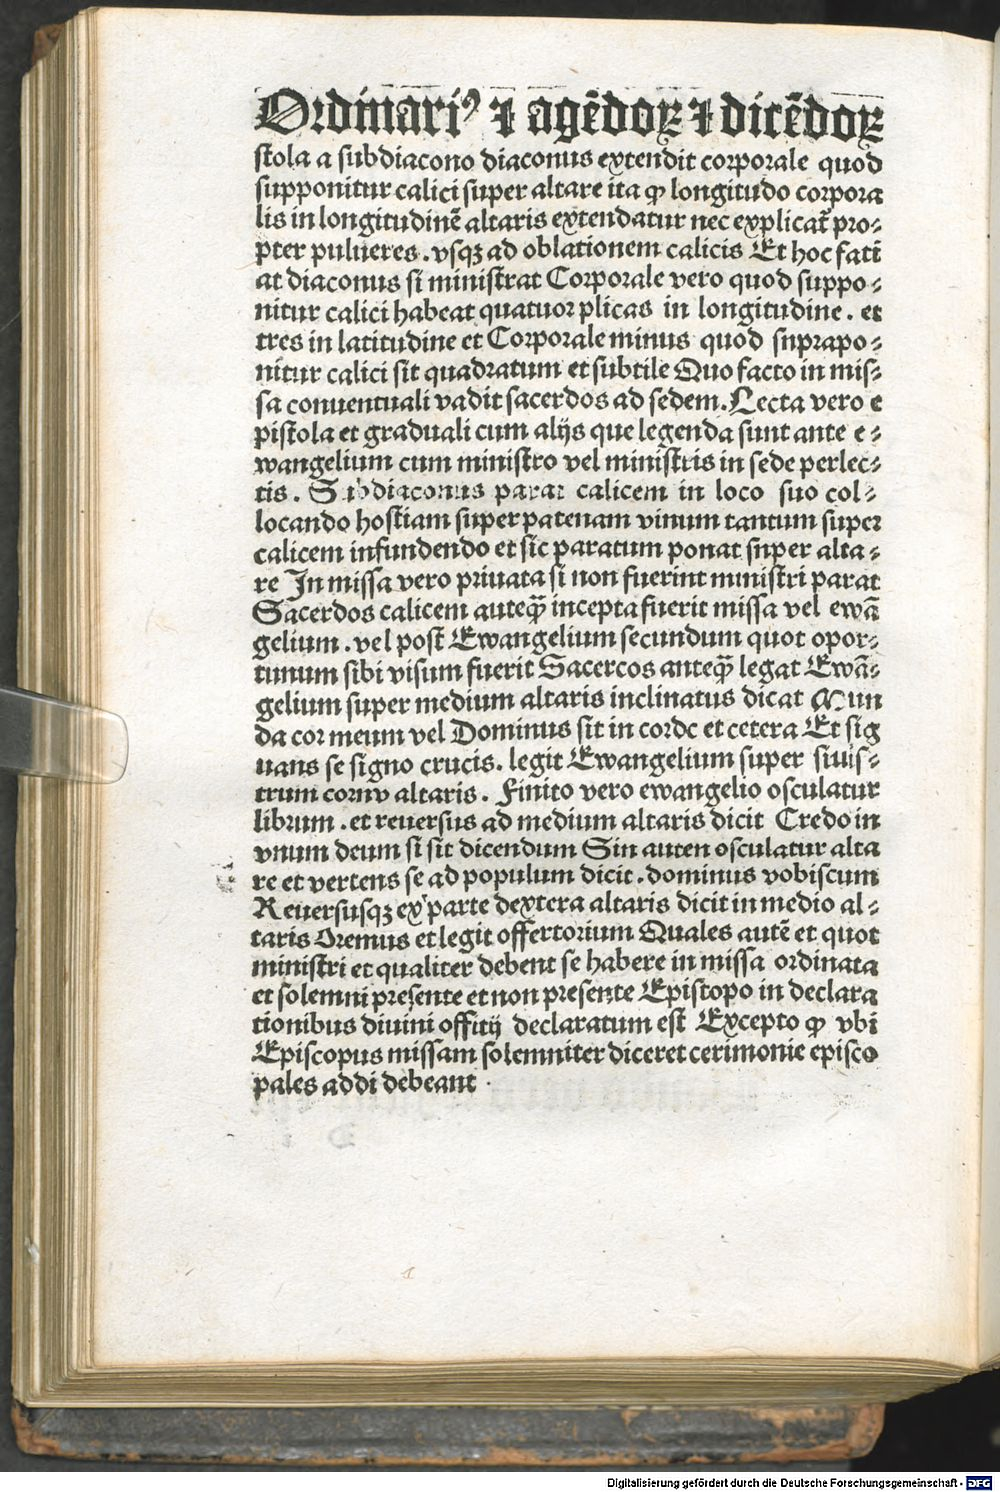 Ordinariꝰ ⁊ agēdoꝝ ⁊ dicēdoꝝ
stola a subdiacono diaconus extendit corporale quod
supponitur calici super altare ita ꝙ longitudo corpora
lis in longitudinē altaris extendatur nec explicat᷑ pro⸗
pter pulueres . vsqꝫ ad oblationem calicis Et hoc faci
at diaconus si ministrat Corporale vero quod suppo⸗
nitur calici habeat quatuor plicas in longitudine . et
tres in latitudine et Corporale minus quod snprapo⸗
nitur calici sit quadratum et subtile Quo facto in mis⸗
sa conuentuali vadit sacerdos ad sedem. Lecta vero e
pistola et graduali cum alijs que legenda sunt ante e⸗
wangelium cum ministro vel ministris in sede perlec⸗
tis . Subdiaconus parat calicem in loco suo col⸗
locando hostiam super patenam vinum tantum super
calicem infundendo et sic paratum ponat snper alta⸗
re In missa vero priuata si non fuerint ministri parat
Sacerdos calicem auteꝙ̄ incepta fuerit missa vel ewā
gelium . vel post Ewangelium secundum quot opor⸗
tunum sibi visum fuerit Sacercos anteꝙ̄ legat Ewā⸗
gelium super medium altaris inclinatus dicat Mun
da cor meum vel Dominus sit in cordc et cetera Et sig
uans se signo crucis. legit Ewangelium super siuis⸗
trum cornv altaris . Finito vero ewangelio osculatur
librum . et reuersus ad medium altaris dicit Credo in
vnum deum si sit dicendum Sin auten osculatur alta
re et vertens se ad populum dicit . dominus vobiscum
Reuersusqꝫ ex parte dextera altaris dicit in medio al⸗
taris Oremus et legit offertorium Quales autē et quot
ministri et qualiter debent se habere in missa ordinata
et solemni presente et non presente Epistopo in declara
tionibus diuini offitij declaratum est Excepto ꝙ vbi
Episcopus missam solemniter diceret cerimonie episco
pales addi debeant .
Digitalisierung gefördert durch die Deutsche Forschungsgemeinschaft - DFG